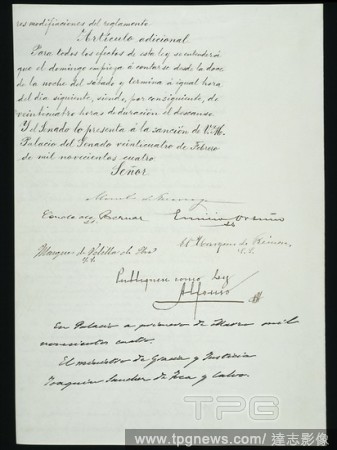 res modificaciones del reglamento.
Artículo adicional.
Para todos los efectos de esta ley se entenderá
que el domingo empieza á contarse desde la doce
de la noche del sábado y termina á igual hora
del dia siguiente, siendo, por consiguiente, de
veinticuatro horas de duración el descanso.
Y el Senado lo presenta á la sanción de V. M.
Palacio del Senado veinticuatro de Febrero
de mil novecientos cuatro.
Señor
El Conde de Bernar
Marques de
El Marques de
Publíquese como ley
Alfonso
En Palacio a primero de Marzo mil
novecientos cuatro.
El ministro de Gracia y Justicia
Joaquin Sanchez de Toca y Calvo.
TPG
www.tpgnews.com/達志影像